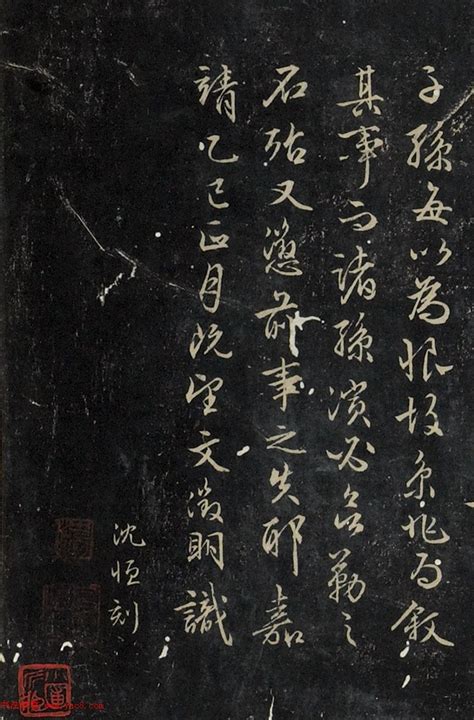 子孫每以為恨故余為敘
其事而諸孫濱必欲勒之
石殆又懲前事之失耶嘉
靖乙巳正月既望文徵明識
沈恒刻